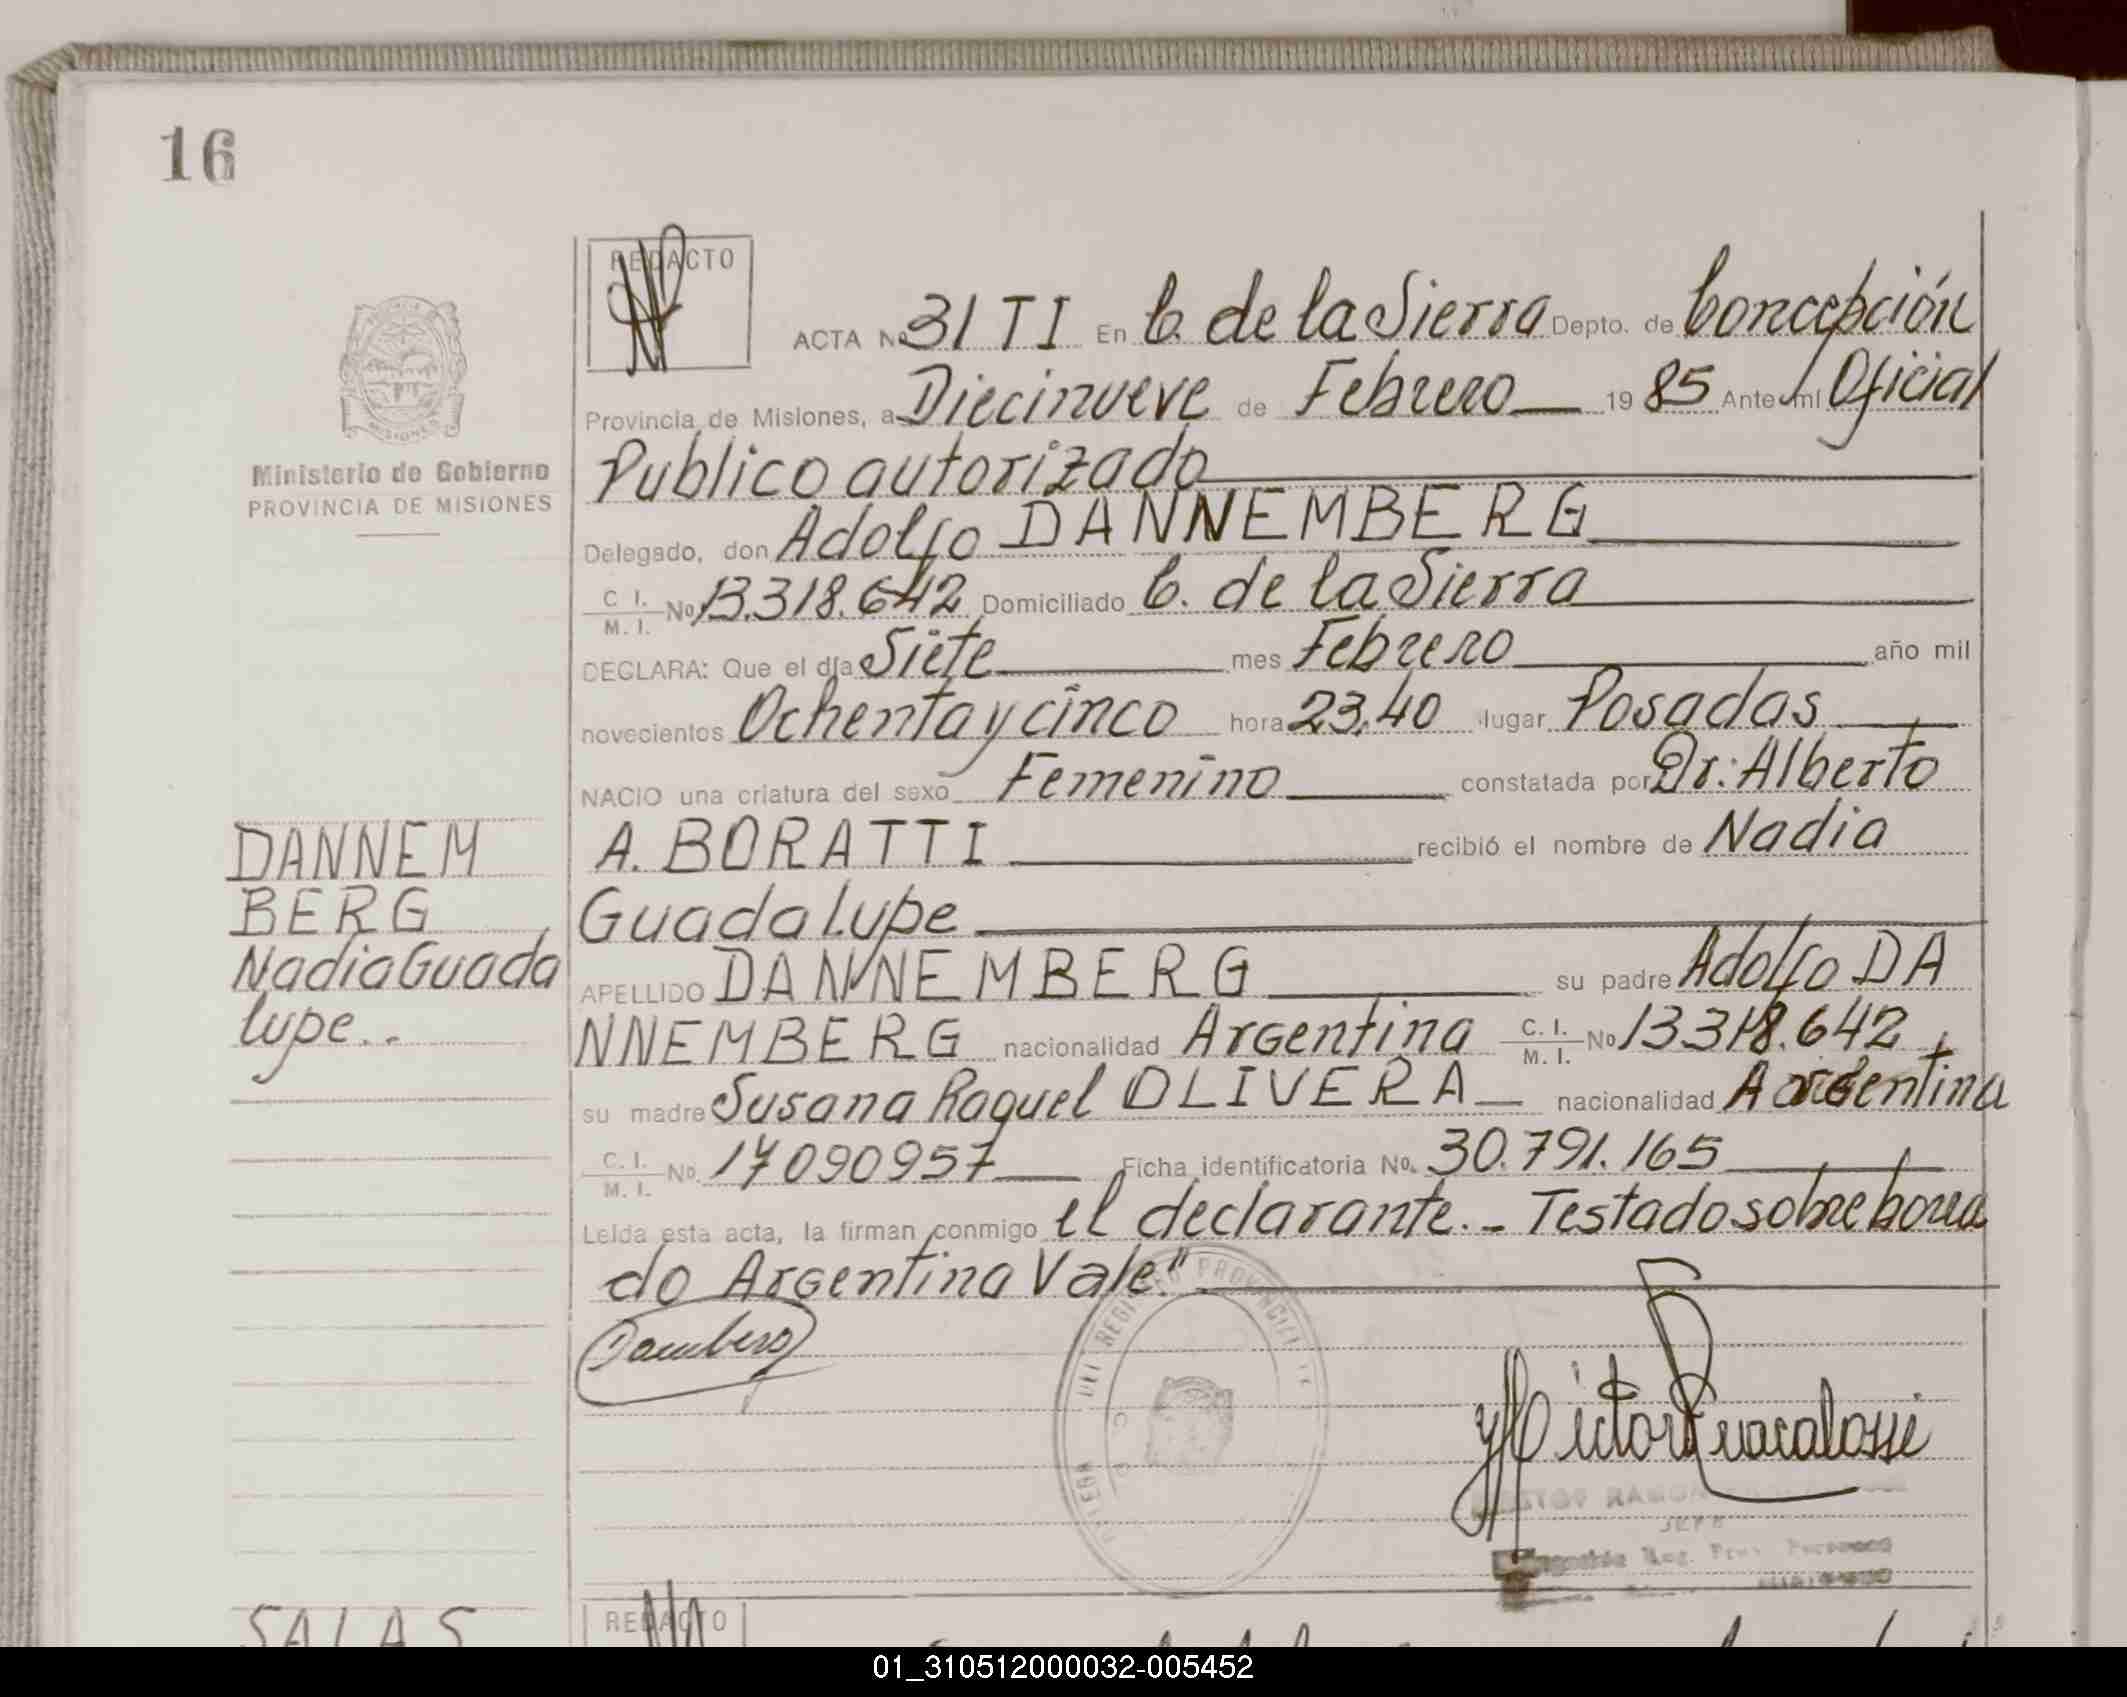 16
REDACTO
ACTA Nº 31 TI En C. de la Sierra Depto. de Concepción
Provincia de Misiones, a Diecinueve de Febrero 19 85 Ante mí Oficial
Ministerio de Gobierno
PROVINCIA DE MISIONES
MISIONES
Publico autorizado
Delegado, don Adolfo DANNEMBERG
C. I. M. I. Nº 13.318.642 Domiciliado C. de la Sierra
DECLARA: Que el día Siete mes Febrero año mil
novecientos Ochenta y cinco hora 23.40 lugar Posadas
NACIO una criatura del sexo Femenino constatada por Dr: Alberto
A. BORATTI recibió el nombre de Nadia
Guadalupe
APELLIDO DANNEMBERG su padre Adolfo DA
NNEMBERG nacionalidad Argentina C. I. M. I. Nº 13.318.642
su madre Susana Raquel OLIVERA nacionalidad Argentina
C. I. M. I. Nº 17090957 Ficha identificatoria Nº 30.791.165
Leída esta acta, la firman conmigo el declarante.- Testado sobre borra
do Argentina Vale."
DANNEM
BERG
Nadia Guada
lupe..
DEL REGISTRO PROVINCIAL
JEFE
SALAS
REDACTO
01_310512000032-005452